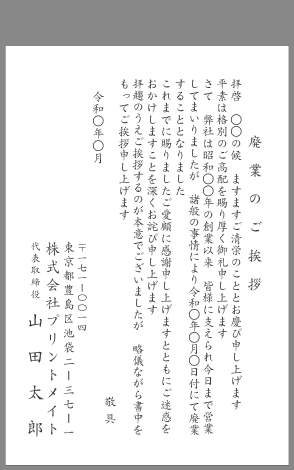 廃業のご挨拶
拝啓　〇〇の候　ますますご清栄のこととお慶び申し上げます
平素は格別のご高配を賜り厚く御礼申し上げます
さて　弊社は昭和〇〇年の創業以来　皆様に支えられ今日まで営業
してまいりましたが　諸般の事情により令和〇年〇月〇日付にて廃業
することとなりました
これまでに賜りましたご愛顧に感謝申し上げますとともにご迷惑を
おかけしますことを深くお詫び申し上げます
拝趨のうえご挨拶するのが本意でございましたが　略儀ながら書中を
もってご挨拶申し上げます
敬具
令和〇年〇月
〒一七一―〇〇一四
東京都豊島区池袋二―三七―一
株式会社プリントメイト
代表取締役　山田太郎